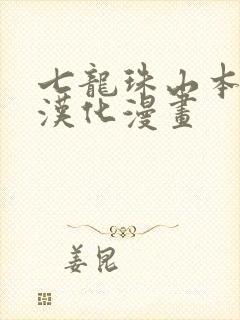 七龍珠山本
漢化漫畫
姜昆